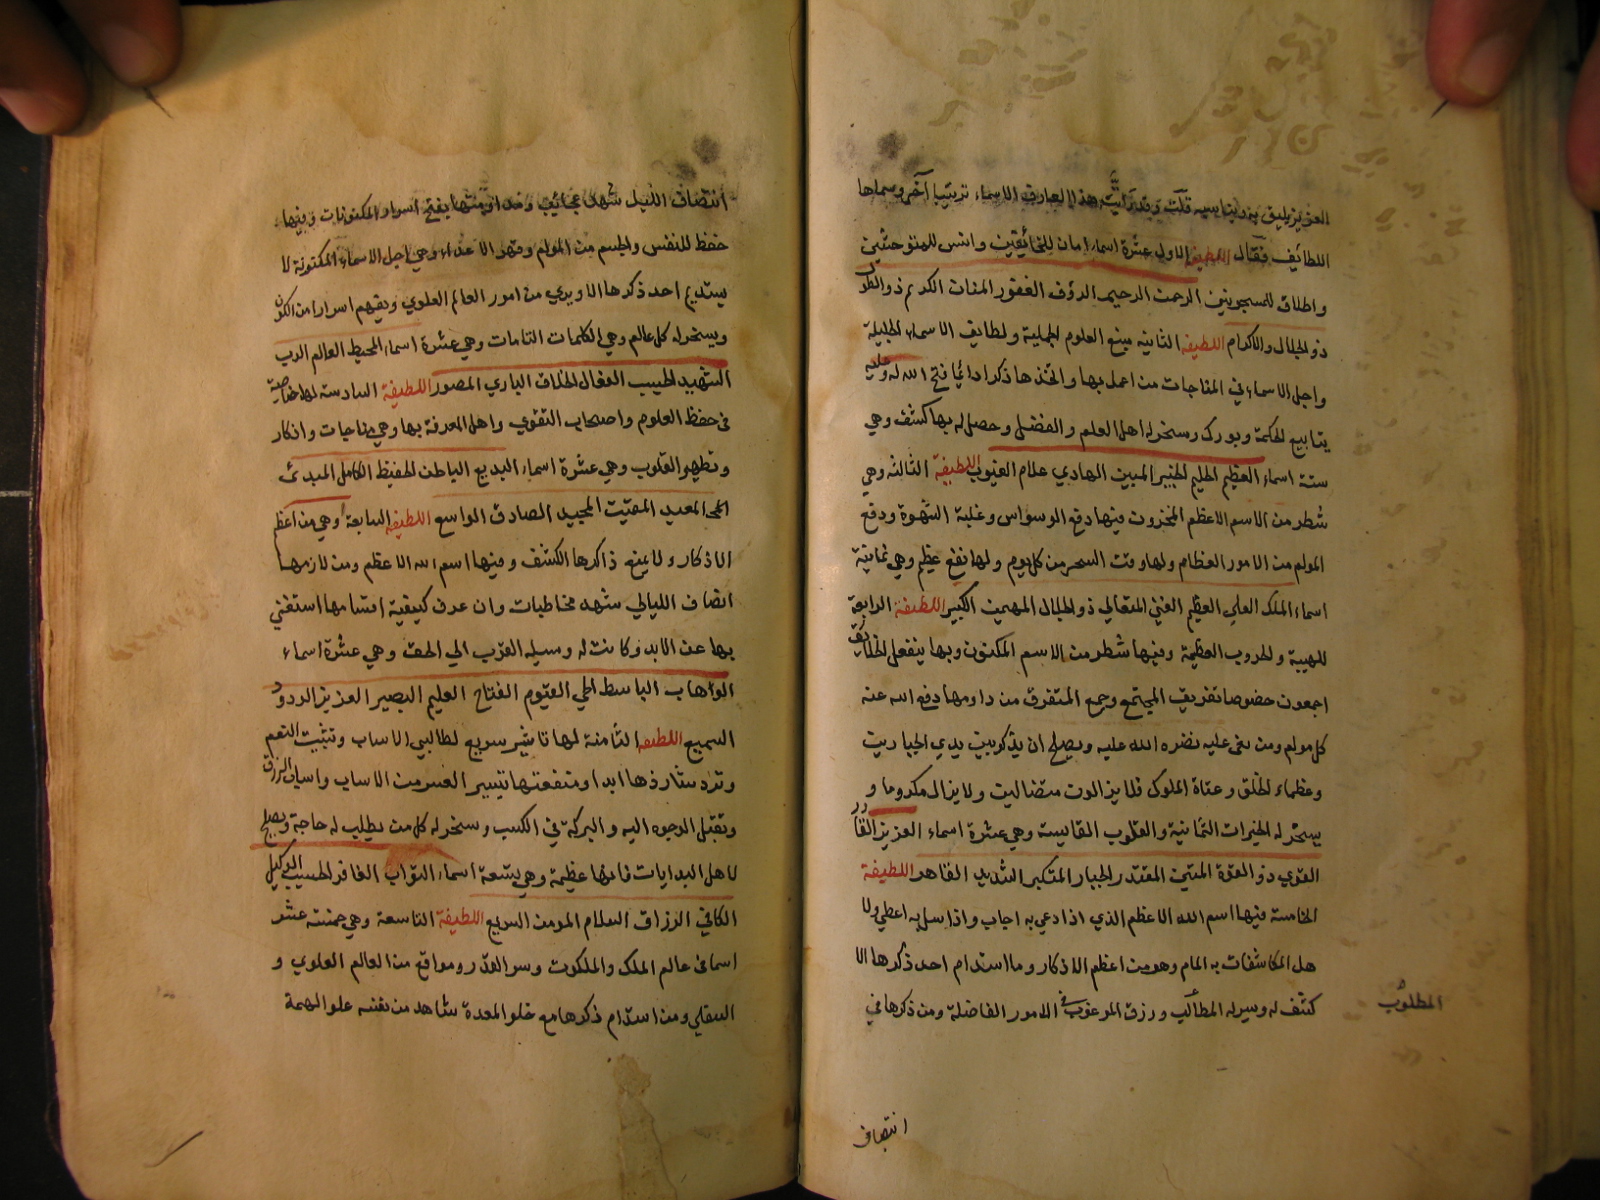 العزيز يليق بزويتا سيه قلت وقد رأيت هذا العارف الاسماء ترتيبا آخر وسماها
اللطايف فقال اللطيفة الاول عشرة اسماء امان للخائفين وانس للمتوحشين
واطلاق للمسجونين الرحمن الرحيم الرؤف الغفور المنان الكريم ذو الطول
ذو الجلال والاكرام اللطيفة الثانية منبع العلوم الجملية ولطايف الاسماء الجليلة
واجل الاسماء في المناجات من اعمل بها واتخذها ذكرا دائما فتح الله له وعليه
ينابيع الحكمة وبورك وسخر له اهل العلم والفضل وحصل له بها كشف وهي
ستة اسماء العظيم الحليم الخبير المبين الهادي علام الغيوب اللطيفة الثالثة وهي
شطر من الاسم الاعظم المخزون فيها دفع الوسواس وغلبة الشهوة ودفع
المولم من الامور العظام ولها وقت السحر من كل يوم ولها نفع عظيم وهي ثمانية
اسماء الملك العلي العظيم الغني المتعالي ذو الجلال المهيمن الكبير اللطيفة الرابعة
للهيبة والحروب العظيمة وفيها شطر من الاسم المكنون وبها ينفعل الخلائق
اجمعون خصوصا تفريق المجتمع وجمع المتفرق من داومها دفع الله عنه
كل مولم ومن بغى عليه نصره الله عليه ويصلح ان يذكر بين يدي الجبارين
وعظماء الخلق وعتاة الملوك فلا يزالون متضالين ولا يزال مكروما و
يسخر له الخيرات الثمانية والقلوب القاسية وهي عشرة اسماء العزيز القادر
القوي ذو القوة المتين المقتدر الجبار المتكبر الشديد القاهر اللطيفة
الخامسة فيها اسم الله الاعظم الذي اذا دعي به اجاب واذا سل به اعطي ولا
هل المكاشفات به المام وهو من اعظم الاذكار وما استدام احد ذكرها الا
كشف له وسير له المطالب ورزق المرغوب في الامور الفاضلة ومن ذكرها في
المطلوب
انتصاف
انتصاف الليل شهد عجائب وقد ازمتها بفتح اسرار المكنونات وفيها
حفظ للنفس والجسم من المولم وقهر الاعداء وهي اجل الاسماء المكنونة لا
يستديم احد ذكرها الا ويري من امور العالم العلوي ويفهم اسرارا من الكون
ويسخر له كل عالم وهي الكلمات التامات وهي عشرة اسماء المحيط العالم الرب
الشهيد الحسيب الفعال الخلاق الباري المصور اللطيفة السادسة لها خاصية
في حفظ العلوم واصحاب التقوي واهل المعرفة بها وهي مناجات واذكار
وتطهير القلوب وهي عشرة اسماء البديع الباطن الحفيظ الكامل المبدئ
المعيد المقيت المجيد الصادق الواسع اللطيفة السابعة وهي من اعظم
الاذكار ولا يمنع ذاكرها الكشف وفيها اسم الله الاعظم ومن لازمها
انصاف الليالي شهد مخاطبات وان عرف كيفية اقسامها استغني
بها عن الابد وكانت له وسيله القرب الي الحق وهي عشرة اسماء
الواهاب الباسط الحي القيوم الفتاح العليم البصير العزيز الودود
السميع اللطيفة الثامنة لها تاثير سريع لطالبي الاسباب وتثبيت النعم
وترد شاردها ابدا ومنفعتها تيسير العسر من الاسباب واسباب الرزق
وتقبل الوجوه اليه والبركة في الكسب وسخر له كل من يطلب له حاجة ويصلح
لاهل البدايات فانها عظيمة وهي تسعة اسماء التواب الغافر الحسيب الوكيل
الكافي الرزاق السلام المومن السريع اللطيفة التاسعة وهي خمسة عشر
اسما في عالم الملك والملكوت وسر القدر ومواقع من العالم العلوي و
السفلي ومن استدام ذكرها مع خلو المعدة شاهد من نفسه علو الهمة